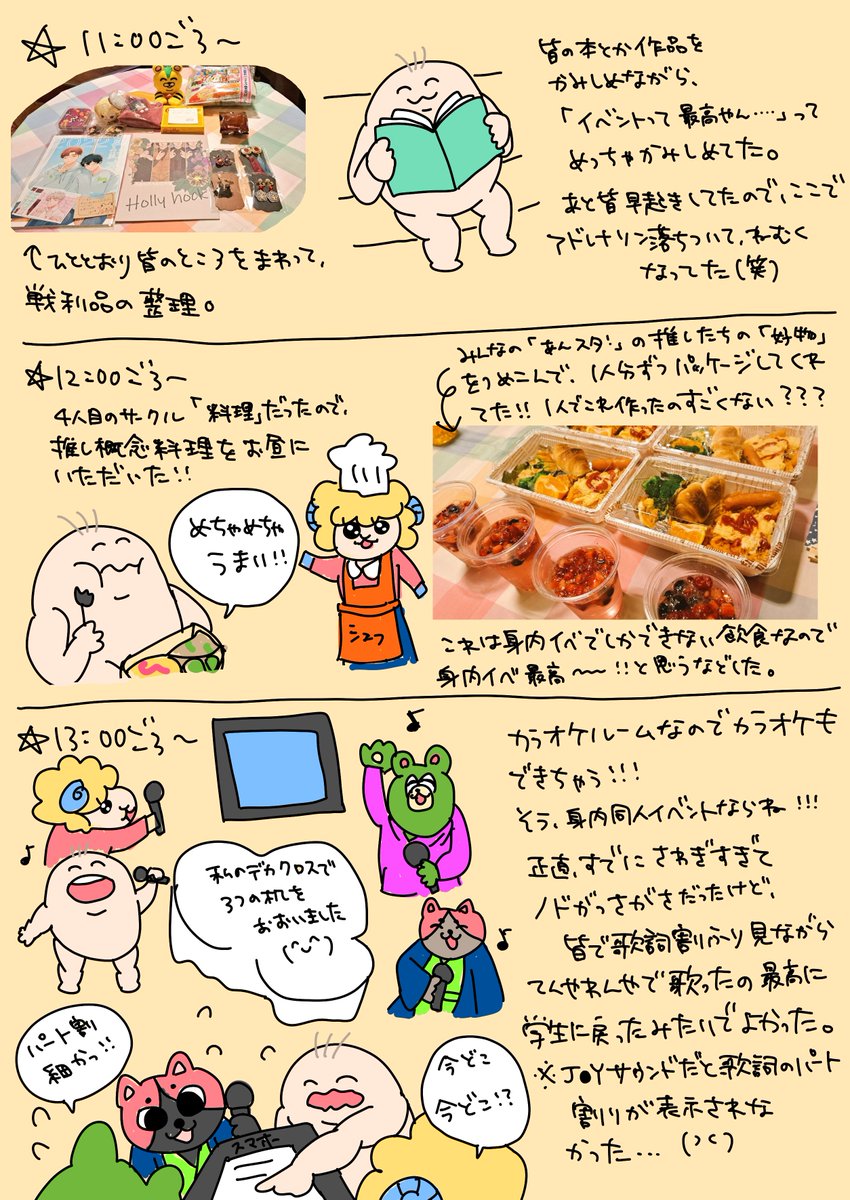 ☆ 11:00ごろ〜
Holly hock
↑ひととおり皆のところをまわって、
戦利品の整理。
皆の本とか作品を
かみしめながら、
「イベントって最高やん….」って
めっちゃかみしめてた。
あと皆早起きしてたので、ここで
アドレナリン落ちついて、ねむく
なってた(笑)
☆12:00ごろ〜
4人目のサークル「料理」だったので、
推し概念料理をお昼に
いただいた!!
めちゃめちゃ
うまい!!
シェフ
みんなの「あんスタ!」の推したちの「好物」
をつめこんで、1人分ずつパッケージしてくれ
てた!! 1人でこれ作ったのすごくない???
これは身内イベでしかできない飲食なので
身内イベ最高〜〜!!と思うなどした。
☆13:00ごろ〜
私のデカクロスで
3つの机を
おおいました
(^◡^)
カラオケルームなのでカラオケも
できちゃう!!!
そう、身内同人イベントならね!!!
正直、すでにさわぎすぎて
ノドがっさがさだったけど、
皆で歌詞割ふり見ながら
てんやわんやで歌ったの最高に
学生に戻ったみたいでよかった。
※J●Yサウンドだと歌詞のパート
割りが表示されな
かった…
パート割
細かっ!!
スマホ
今どこ
今どこ!?